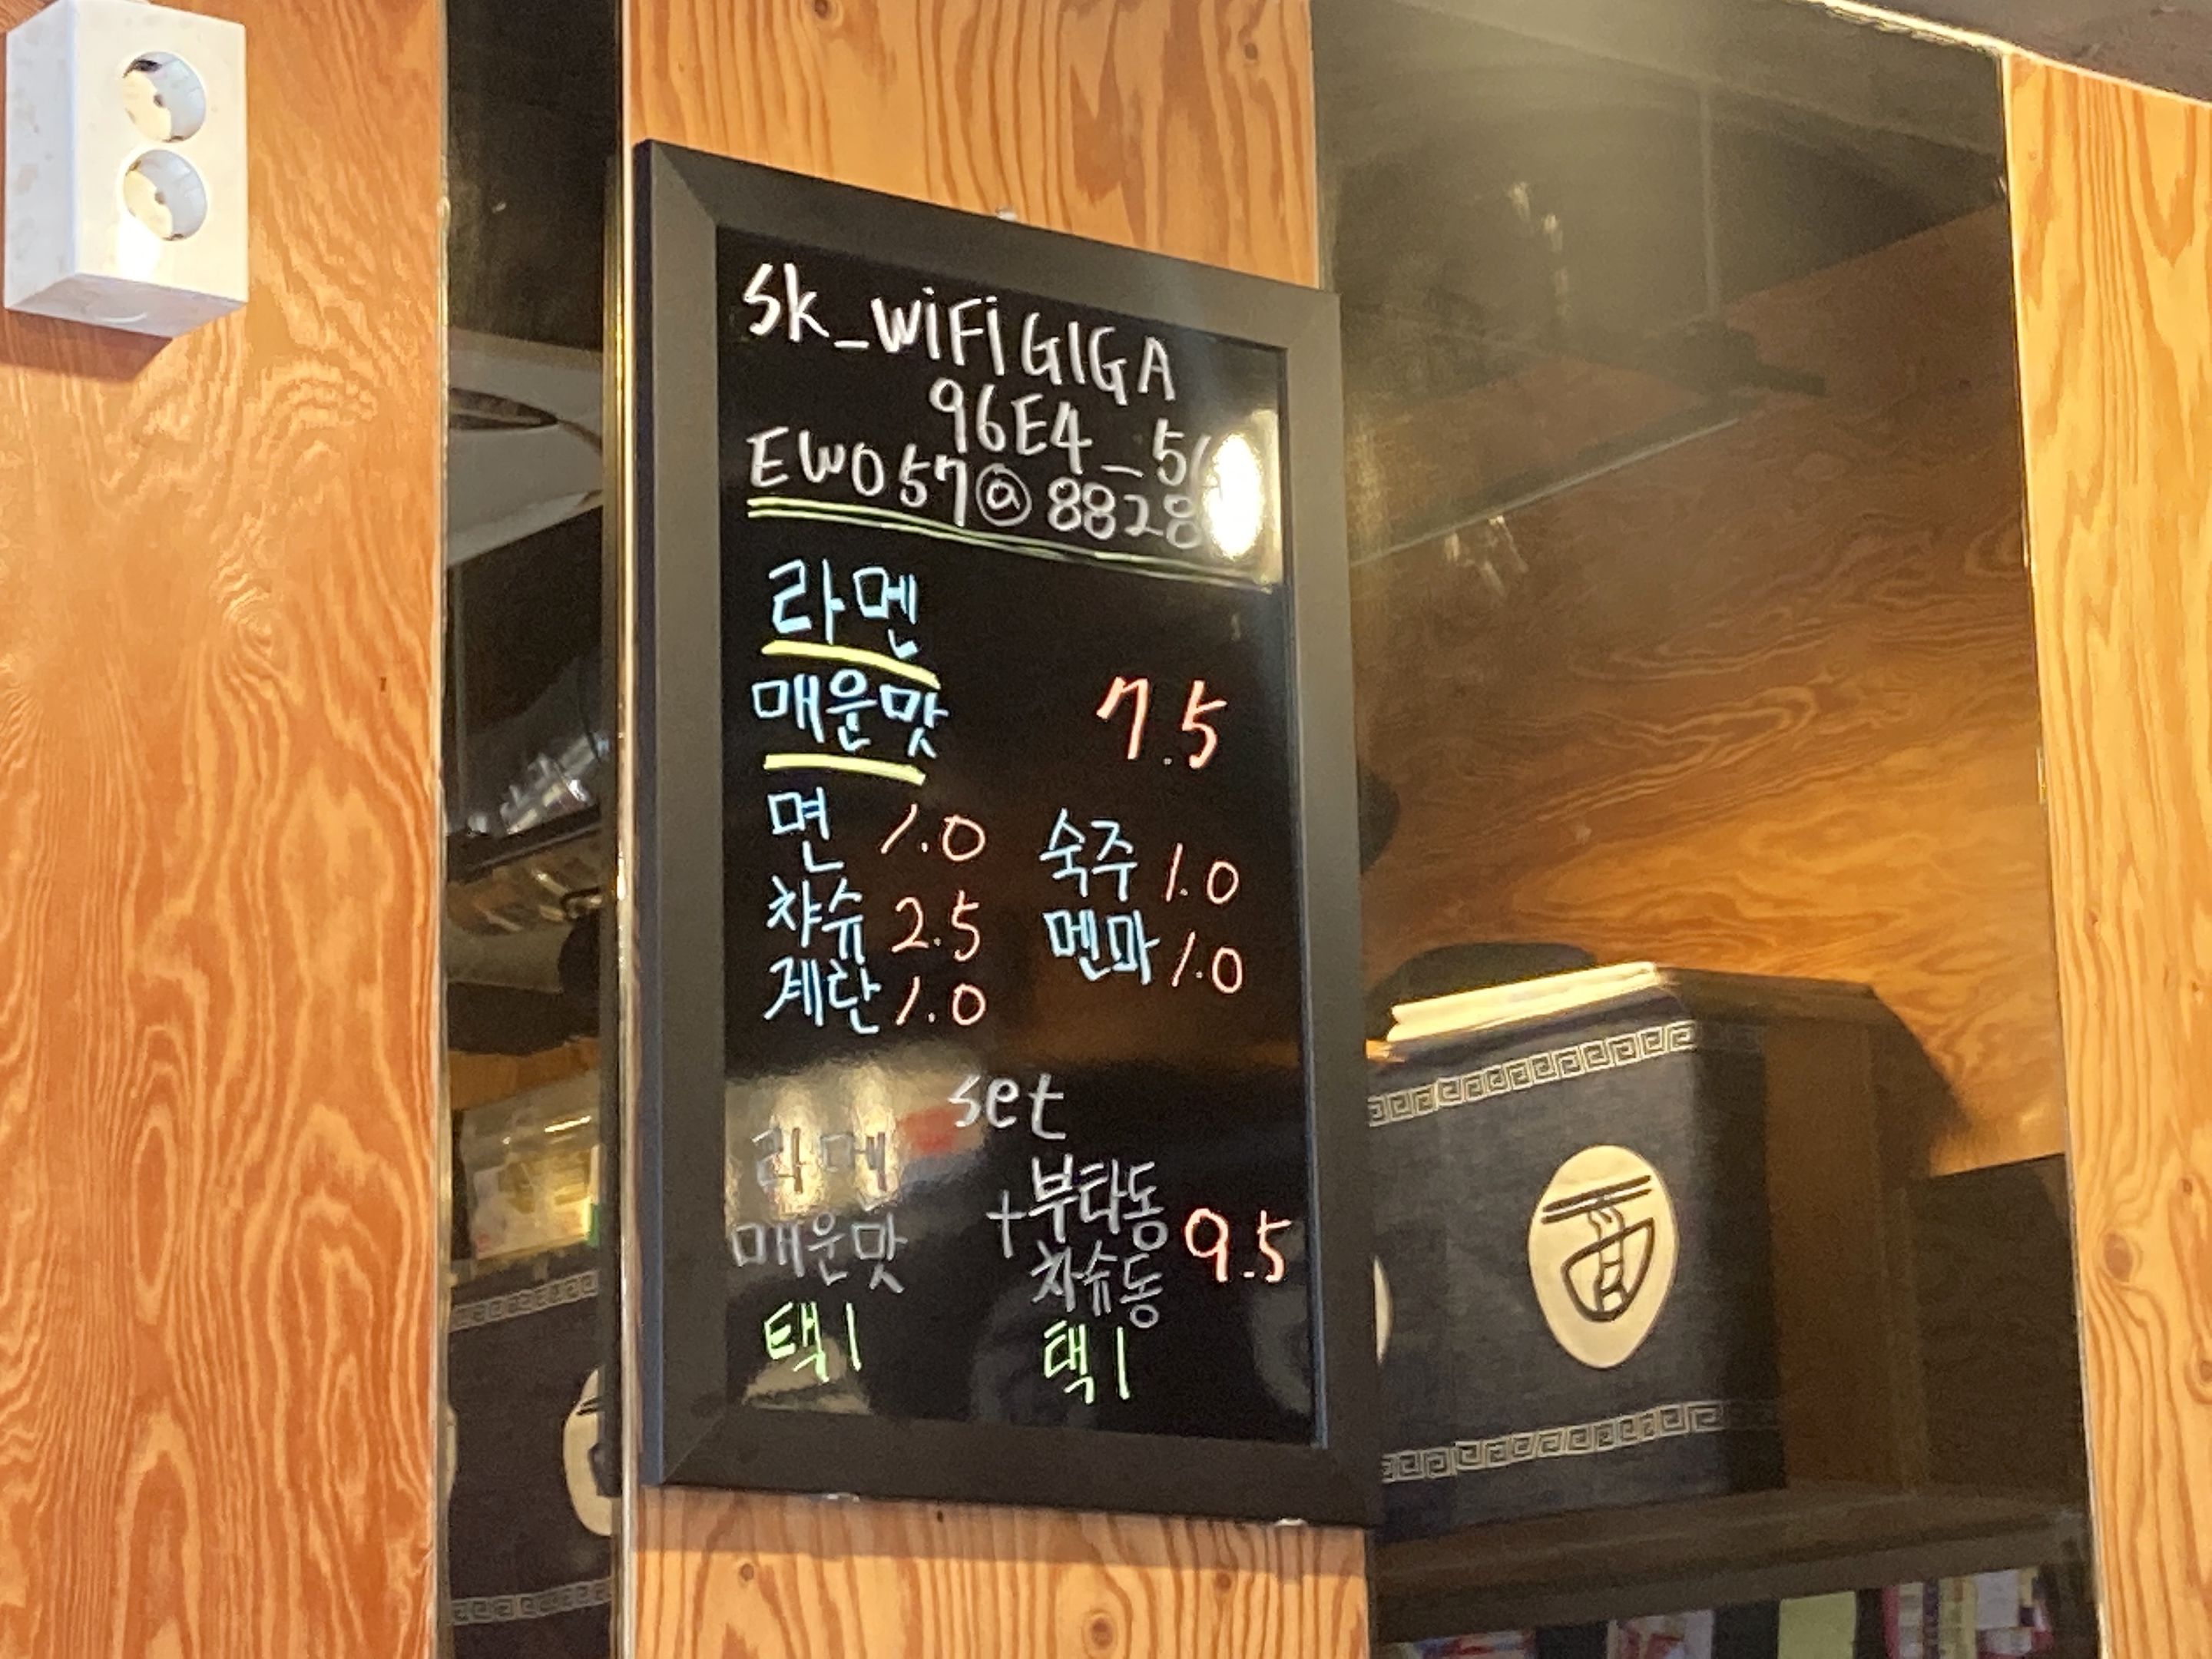 Sk_WiFi GIGA
96E4_
EW057@8828
라멘
매운맛 7.5
면 1.0 숙주 1.0
챠슈 2.5 멘마 1.0
계란 1.0
set
라멘 +부타동
매운맛 차슈동 9.5
택1 택1